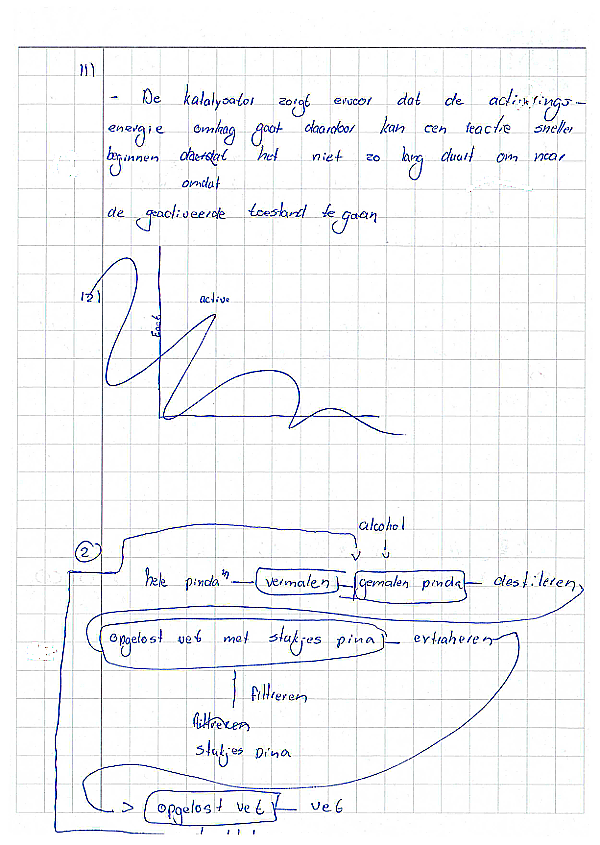 11)
- De katalysator zorgt ervoor dat de activerings-
energie omhaag gaat daardoor kan een reactie sneller
beginnen doordat het niet zo lang duurt om naar
omdat
de geactiveerde toestand te gaan
12)
active
2
alcohol
hele pinda's vermalen gemalen pinda destileren
opgelost vet met stukjes pina extraheren
filtreren
filtreren
stukjes pina
opgelost vet vet